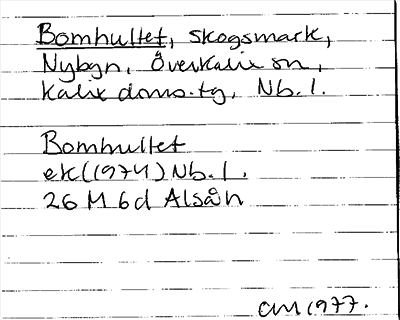 Bomhultet, skogsmark,
Nybyn, Överkalix sn,
Kalix doms.tg, Nb. l.
Bomhultet
ek (1974) Nb. l.
26 M 6d Alsån
1977.